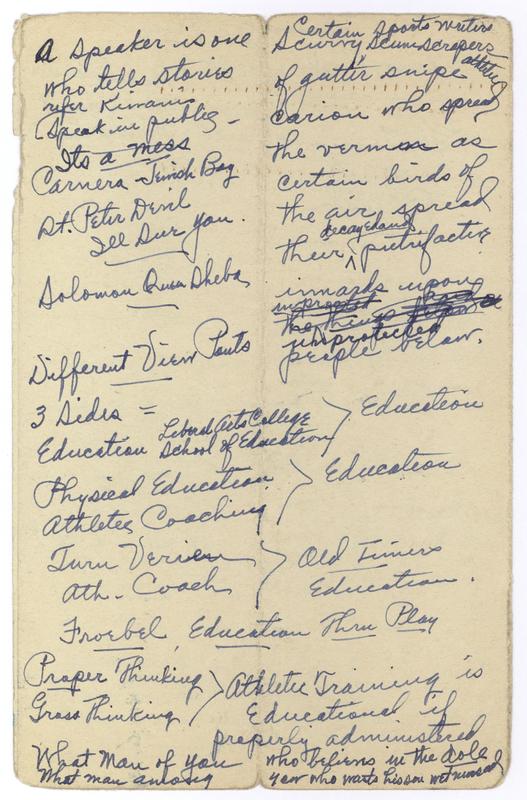 A speaker is one
who tells stories
refer Kiwanis
Speak in public -
Its a mess
Carnera - Jewish Boy
St. Peter Devil
Ill Sue you.
Solomon Queen Sheba
Different View Points
3 Sides =
Education Liberal Arts College School of Education
Physical Education
Athletes Coaching
Turn Verien
Ath. Coach
Certain Sports Writers
Scurvy Scum scrapers
of guttir snipe athletic
carion who spread
the vermon as
certain birds of
the air spread
their decayed and putrifactive
inwards upon
unprotected
people below.
Education
Education
Old Timers
Education.
Froebel, Education Thru Play
Proper Thinking
Gross Thinking
Athletic Training is
Educational if
properly administered
What Man of you
What man among
who believes in the dole
you who wants his son